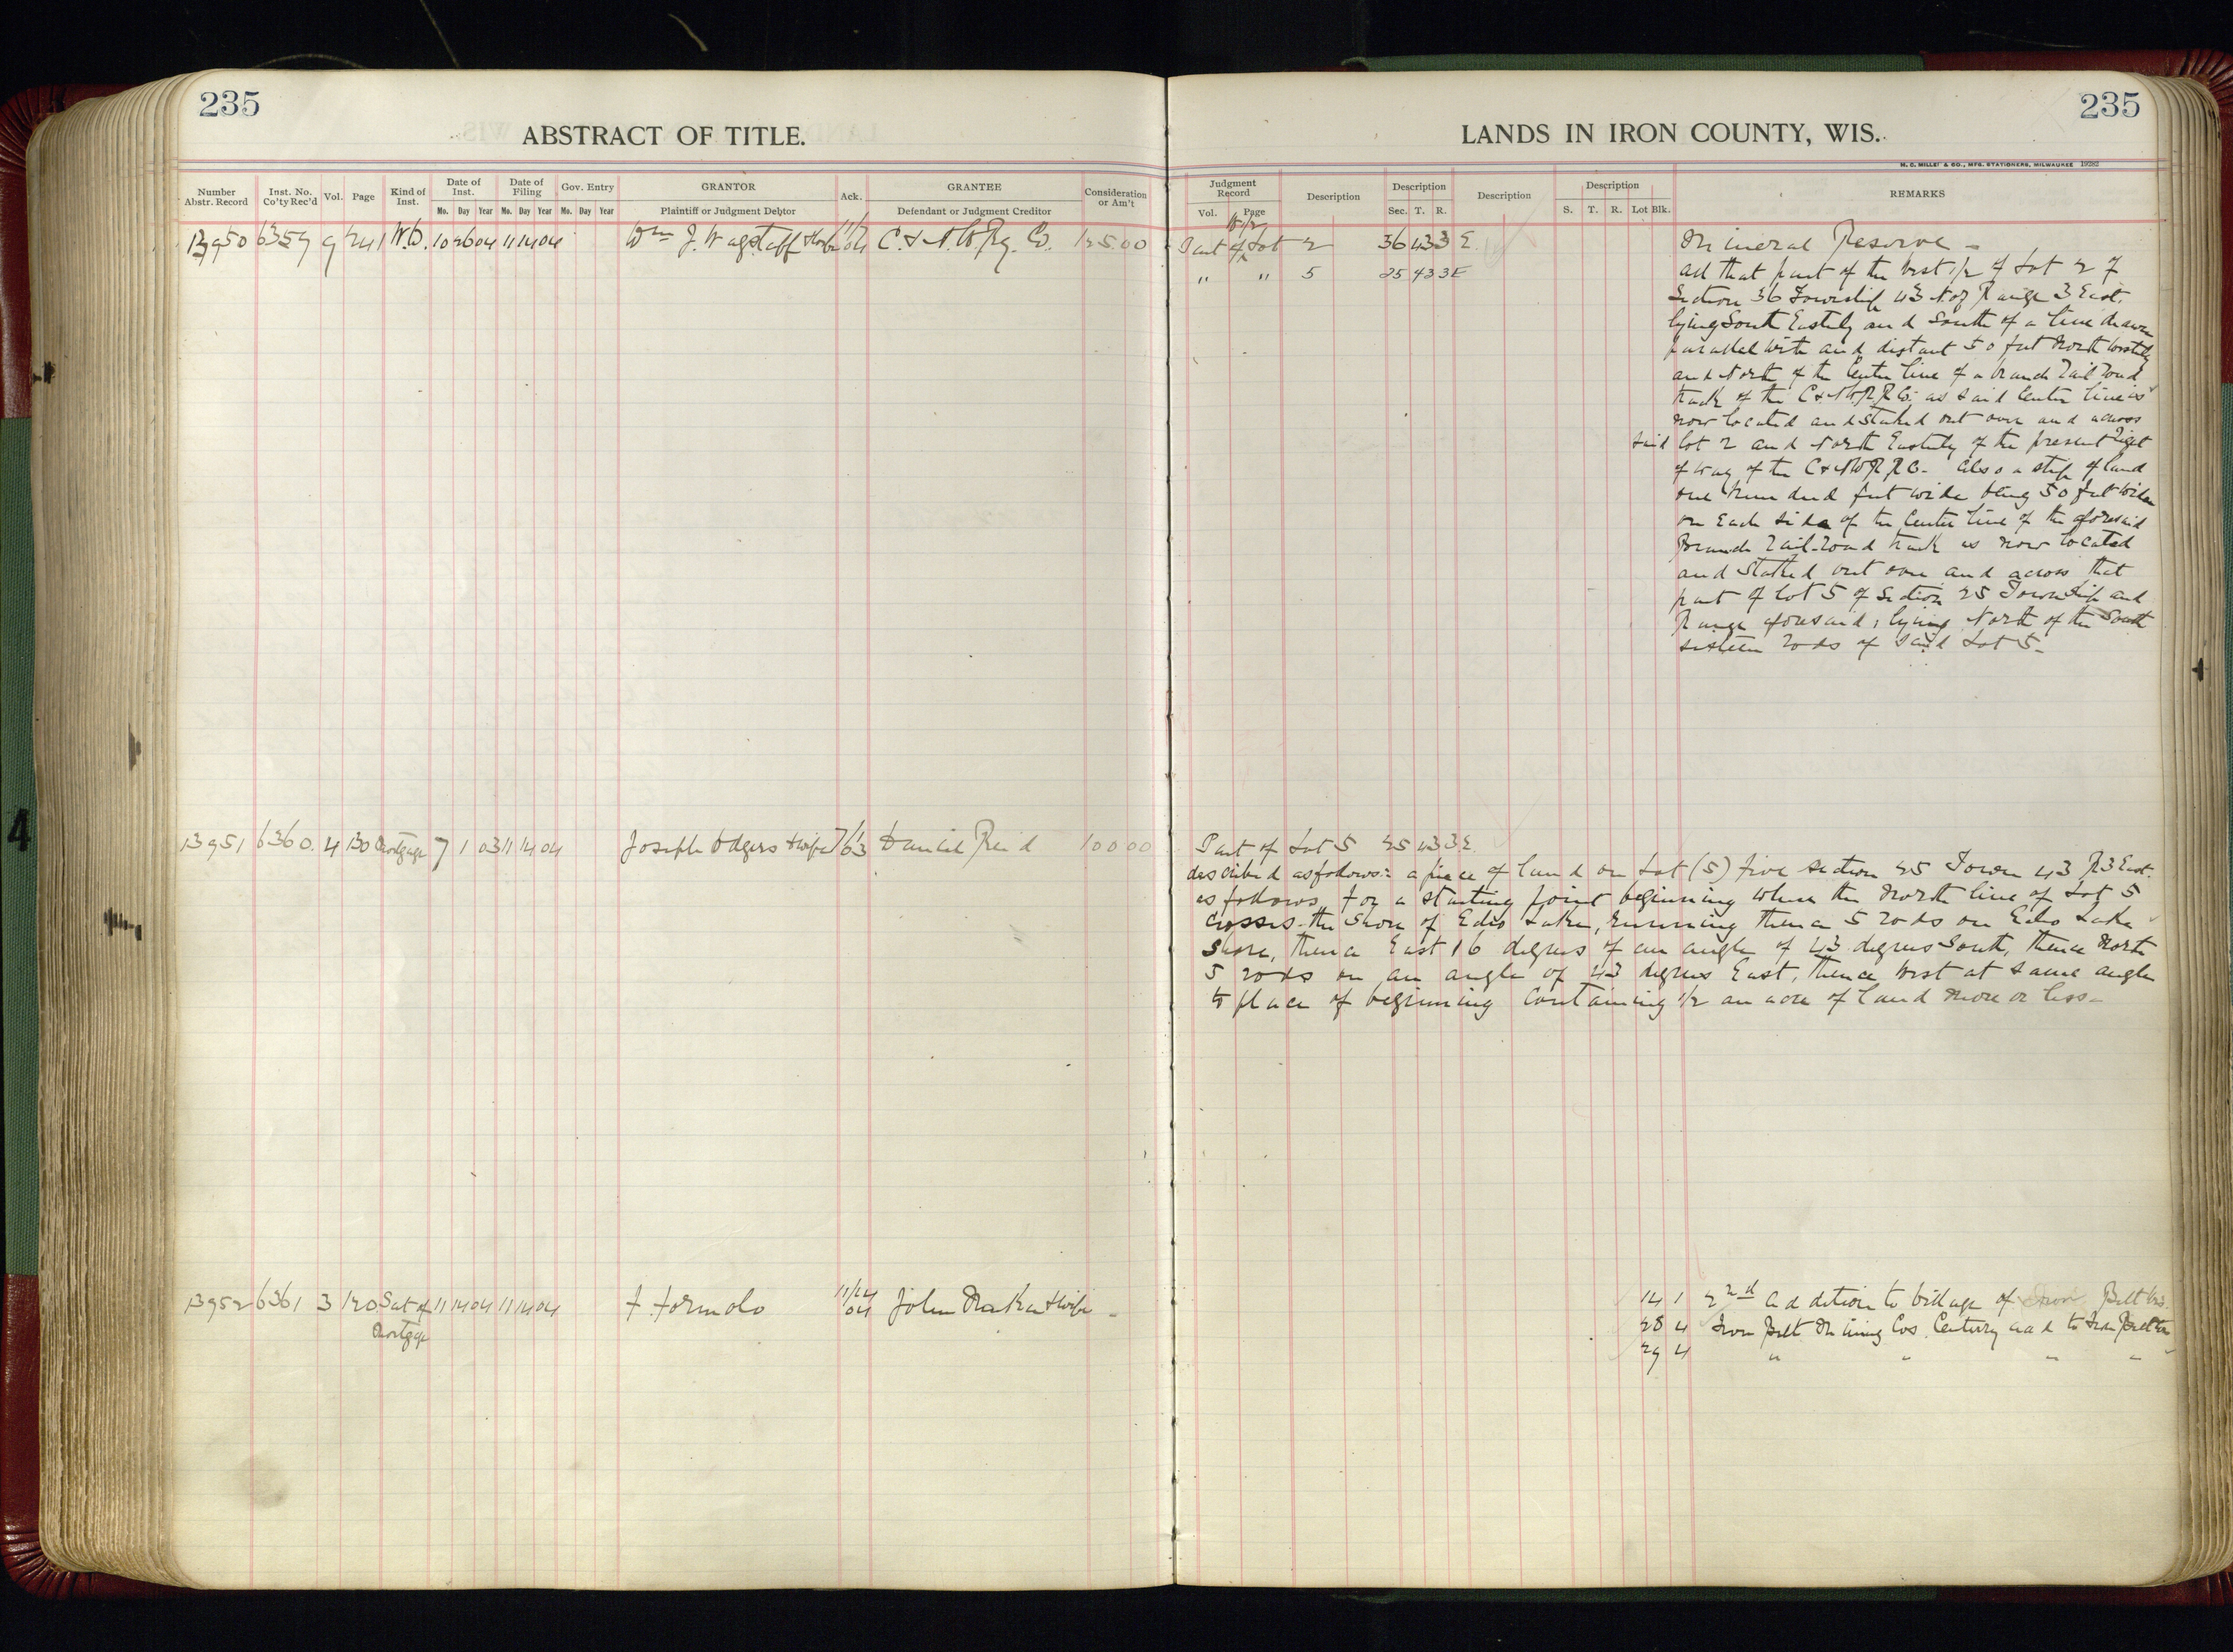 235
ABSTRACT OF TITLE.
Number Abstr. Record Inst. No. Co'ty Rec'd Vol. Page Kind of Inst. Date of Inst. Date of Filing Gov. Entry GRANTOR Ack. GRANTEE Consideration or Am't
Mo. Day Year Mo. Day Year Mo. Day Year Plaintiff or Judgment Debtor Defendant or Judgment Creditor
13950 6359 9 241 W.D. 10 26 04 11 14 04 Wm J. Wagstaff & wife 11/7 04 C. & N. W. Ry. Co. 125.00
13951 6360. 4 130 Mortgage 7 1 03 11 14 04 Joseph Odgers & wife 7/1 63 Daniel Reid 100 00
13952 6361 3 120 Sat of 11 14 04 11 14 04 F. Formolo 11/14 04 John & wife -
Mortgage
235
LANDS IN IRON COUNTY, WIS.
H. C. MILLER & CO., MFG. STATIONERS, MILWAUKEE 19282
Judgment Record Description Description Description Description REMARKS
Vol. Page Sec. T. R. S. T. R. Lot Blk.
W 1/2
Part of Lot 2 36 43 3 E.
" " 5 25 43 3 E
Mineral Reserve -
All that part of the West 1/2 of Lot 2 of
Section 36 Township 43 N of Range 3 East.
lying South Easterly and South of a line drawn
parallel with and distant 50 feet North Westerly
and North of the Center line of a branch Rail Road
track of the C & N W R R Co. as said Center line is
now located and staked out over and across
said lot 2 and North Easterly of the present Right
of way of the C & N W R R Co. - Also a strip of land
one hundred feet wide being 50 feet wide
on Each side of the Center line of the aforesaid
Branch Rail-Road track as now located
and staked out over and across that
part of lot 5 of Section 25 Township and
Range aforesaid; lying North of the South
sixteen rods of said Lot 5.-
Part of Lot 5 25 43 3 E.
described as follows: a piece of land on Lot (5) five section 25 Town 43 R 3 East.
as follows, for a starting point beginning where the North line of Lot 5
crosses the Shore of Echo Lake, running thence 5 rods on Echo Lake
Shore, thence East 16 degrees of an angle of 43 degrees South, thence North
5 rods on an angle of 43 degrees East, thence West at same angle
to place of beginning containing 1/2 an acre of land more or less -
14 1 2nd Addition to Village of Iron Belt Wis.
28 4 Iron Belt Mining Cos Century add to Iron Belt
29 4 " " " "